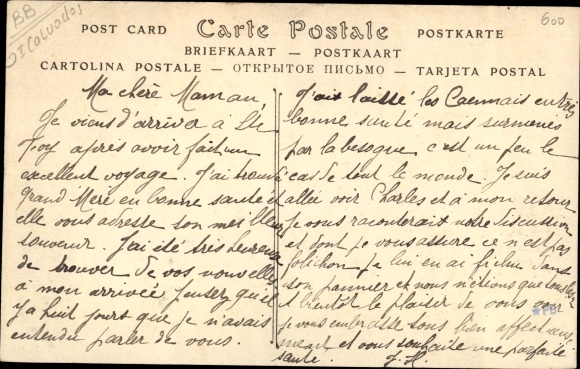 BB
51 Calvados
600
Carte Postale
POST CARD
POSTKARTE
BRIEFKAART — POSTKAART
CARTOLINA POSTALE — ОТКРЫТОЕ ПИСЬМО — TARJETA POSTAL
Ma chère Maman,
Je viens d'arriver à Ste
Foy après avoir fait un
excellent voyage. J'ai trouvé
grand Mère en bonne santé et
elle vous adresse son meilleur
souvenir. J'ai été très heureuse
de trouver de vos nouvelles
à mon arrivée pensez qu'il
y a huit jours que je n'avais
entendu parler de vous.
J'ait laissé les Caennais en très
bonne santé mais surmenés
par la besogne c'est un peu le
cas de tout le monde. Je suis
allée voir Charles et à mon retour
je vous raconterait notre discussion
et dont je vous assure ce n'est pas
folichon je lui en ai fichu dans
son pannier et nous n'étions que
A bientôt le plaisir de vous voir
je vous embrasse tous bien affectueuse
ment et vous souhaite une parfaite
santé. J. H.
*FB